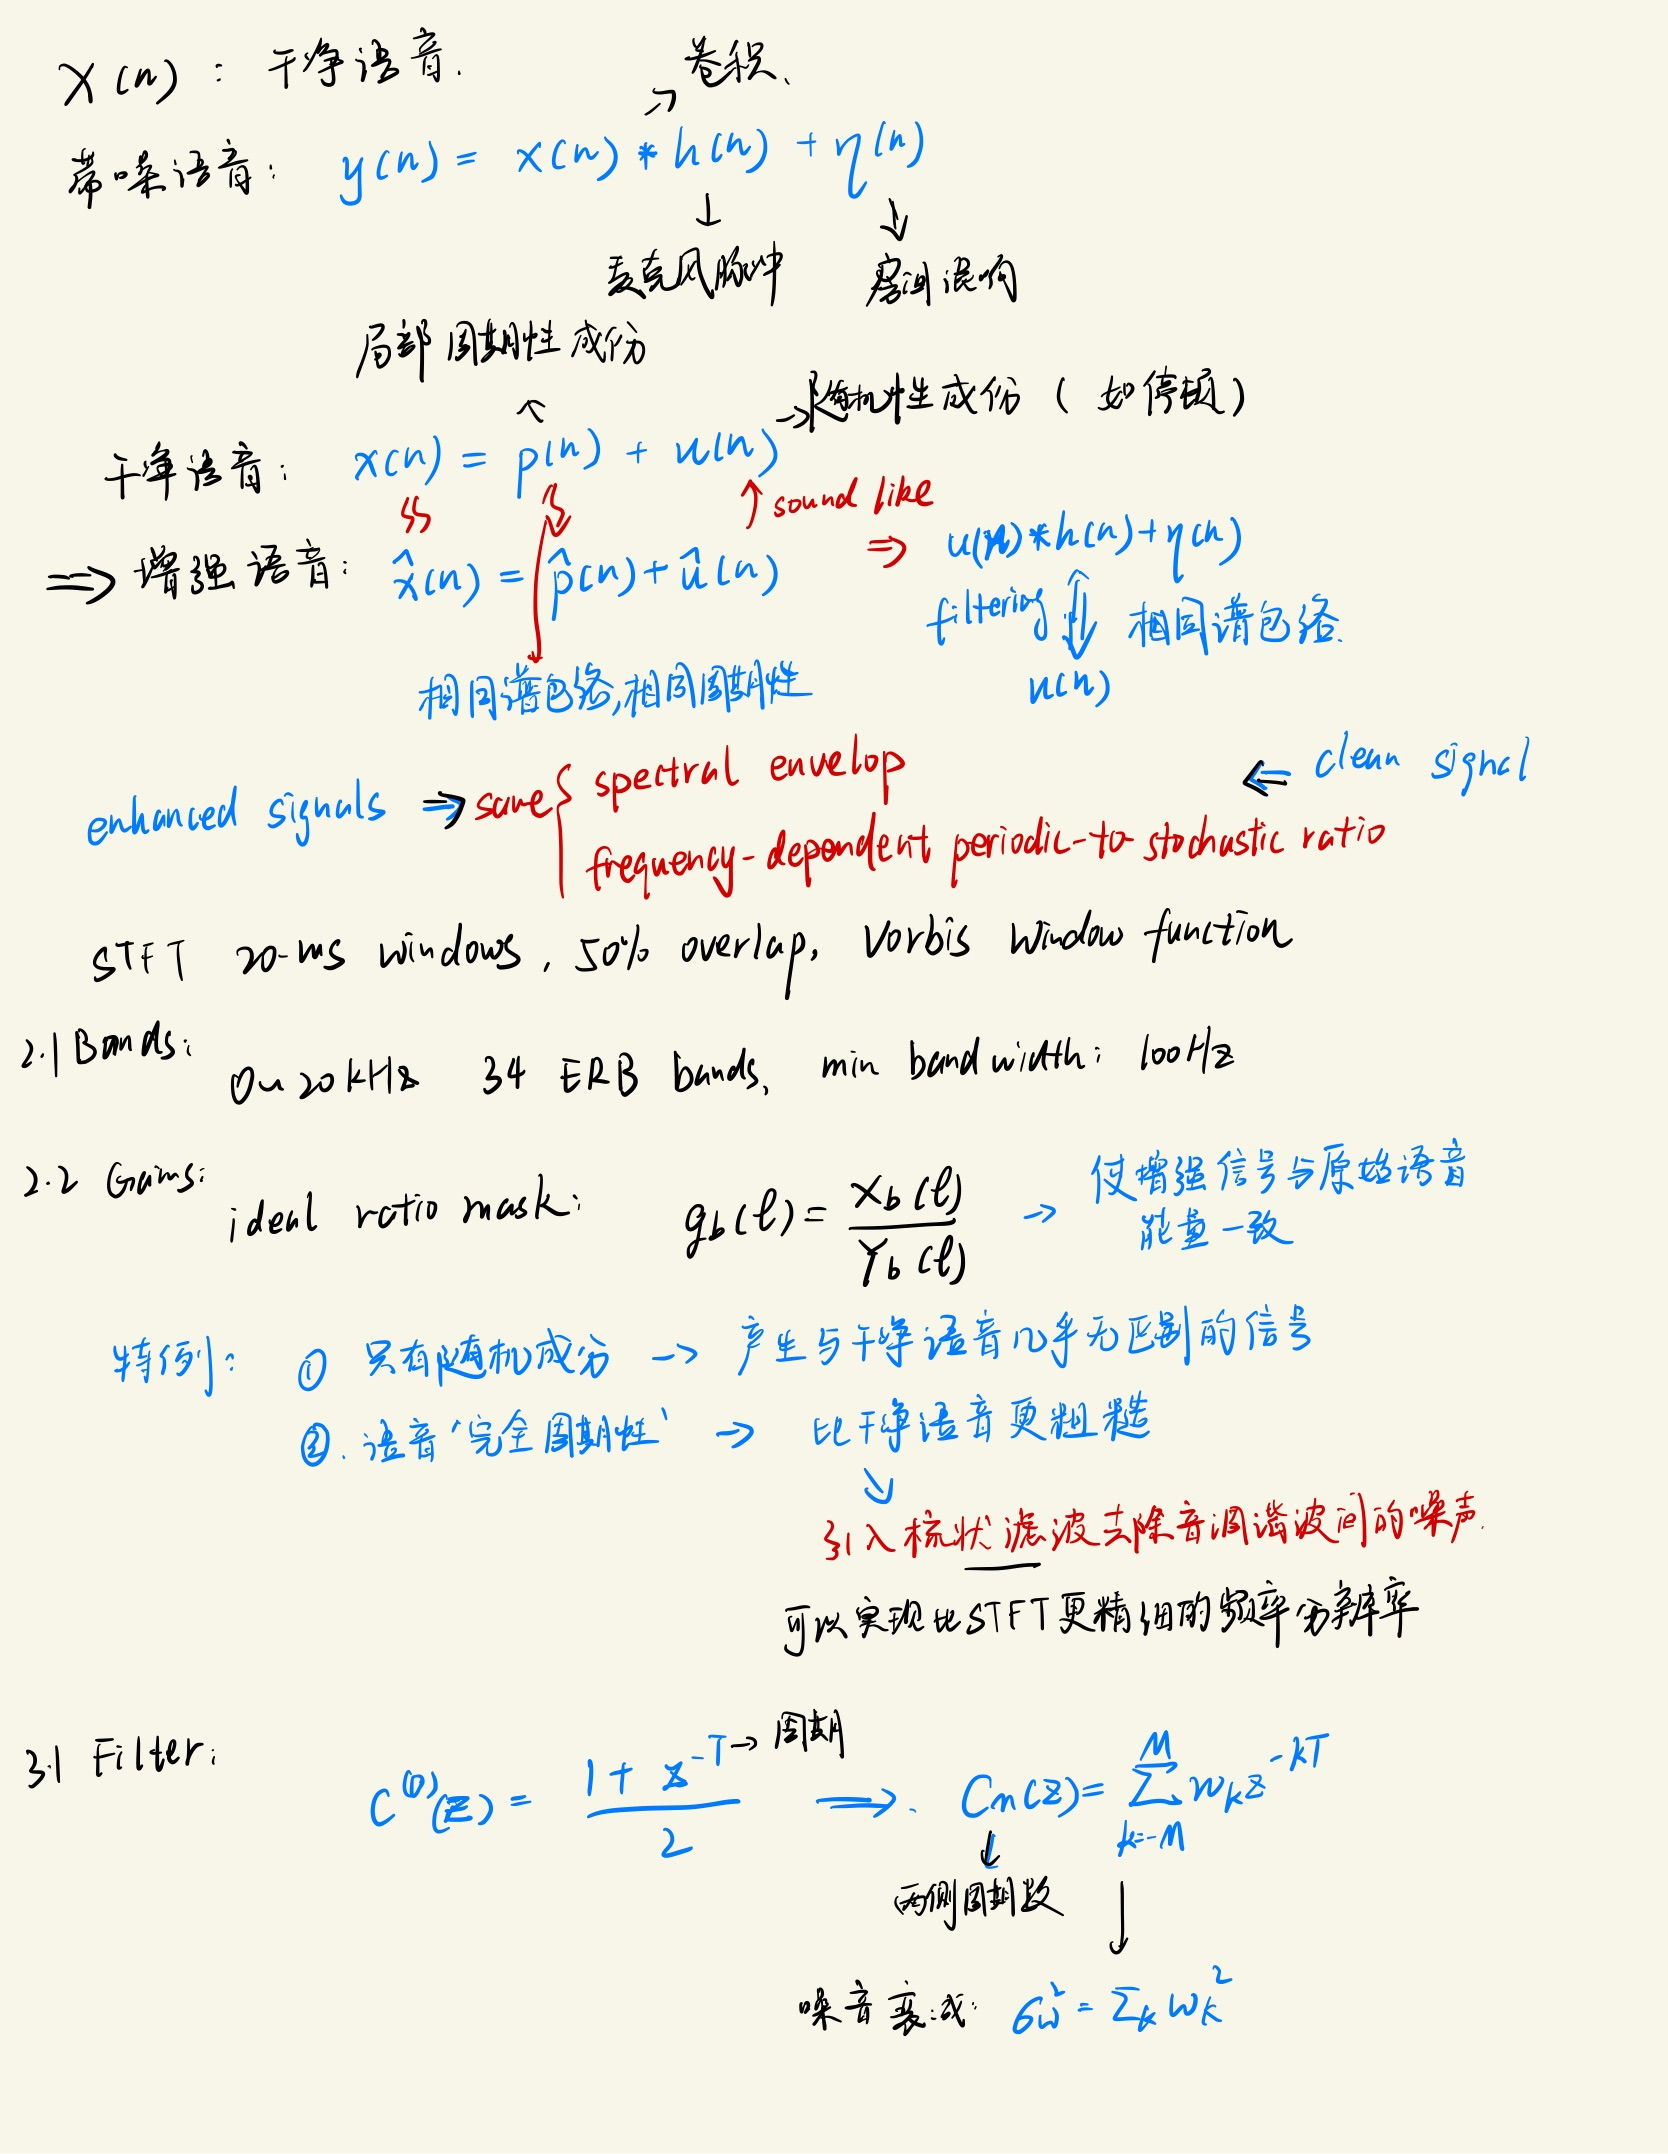 x(n) : 干净语音.
→ 卷积、
带噪语音: y(n) = x(n) * h(n) + η(n)
↓ ↓
麦克风脉冲 房间混响
局部周期性成份
→随机性成份 ( 如停顿 )
干净语音: x(n) = p(n) + u(n)
↑ sound like
⇒ u(n)*h(n)+η(n)
⇒ 增强语音: x̂(n) = p̂(n)+û(n)
filtering ⇕ 相同谱包络.
相同谱包络,相同周期性 u(n)
enhanced signals ⇒ same { spectral envelop ⇐ clean signal
frequency-dependent periodic-to-stochastic ratio
STFT 20-ms windows, 50% overlap, Vorbis window function
2.1 Bands:
0~20kHz 34 ERB bands, min bandwidth: 100Hz
2.2 Gains:
ideal ratio mask: g_b(ℓ) = X_b(ℓ) / Y_b(ℓ) → 使增强信号与原始语音
能量一致
特例: ① 只有随机成分 → 产生与干净语音几乎无区别的信号
②. 语音'完全周期性' → 比干净语音更粗糙
↓
引入梳状滤波去除音调谐波间的噪声.
可以实现比STFT更精细的频率分辨率
3.1 Filter:
C^(0)(z) = (1 + z^-T) / 2 → 周期 ⟹. C_m(z) = Σ_{k=-M}^{M} w_k z^-kT
↓
两侧周期数 ↓
噪音衰减: σ_w^2 = Σ_k w_k^2